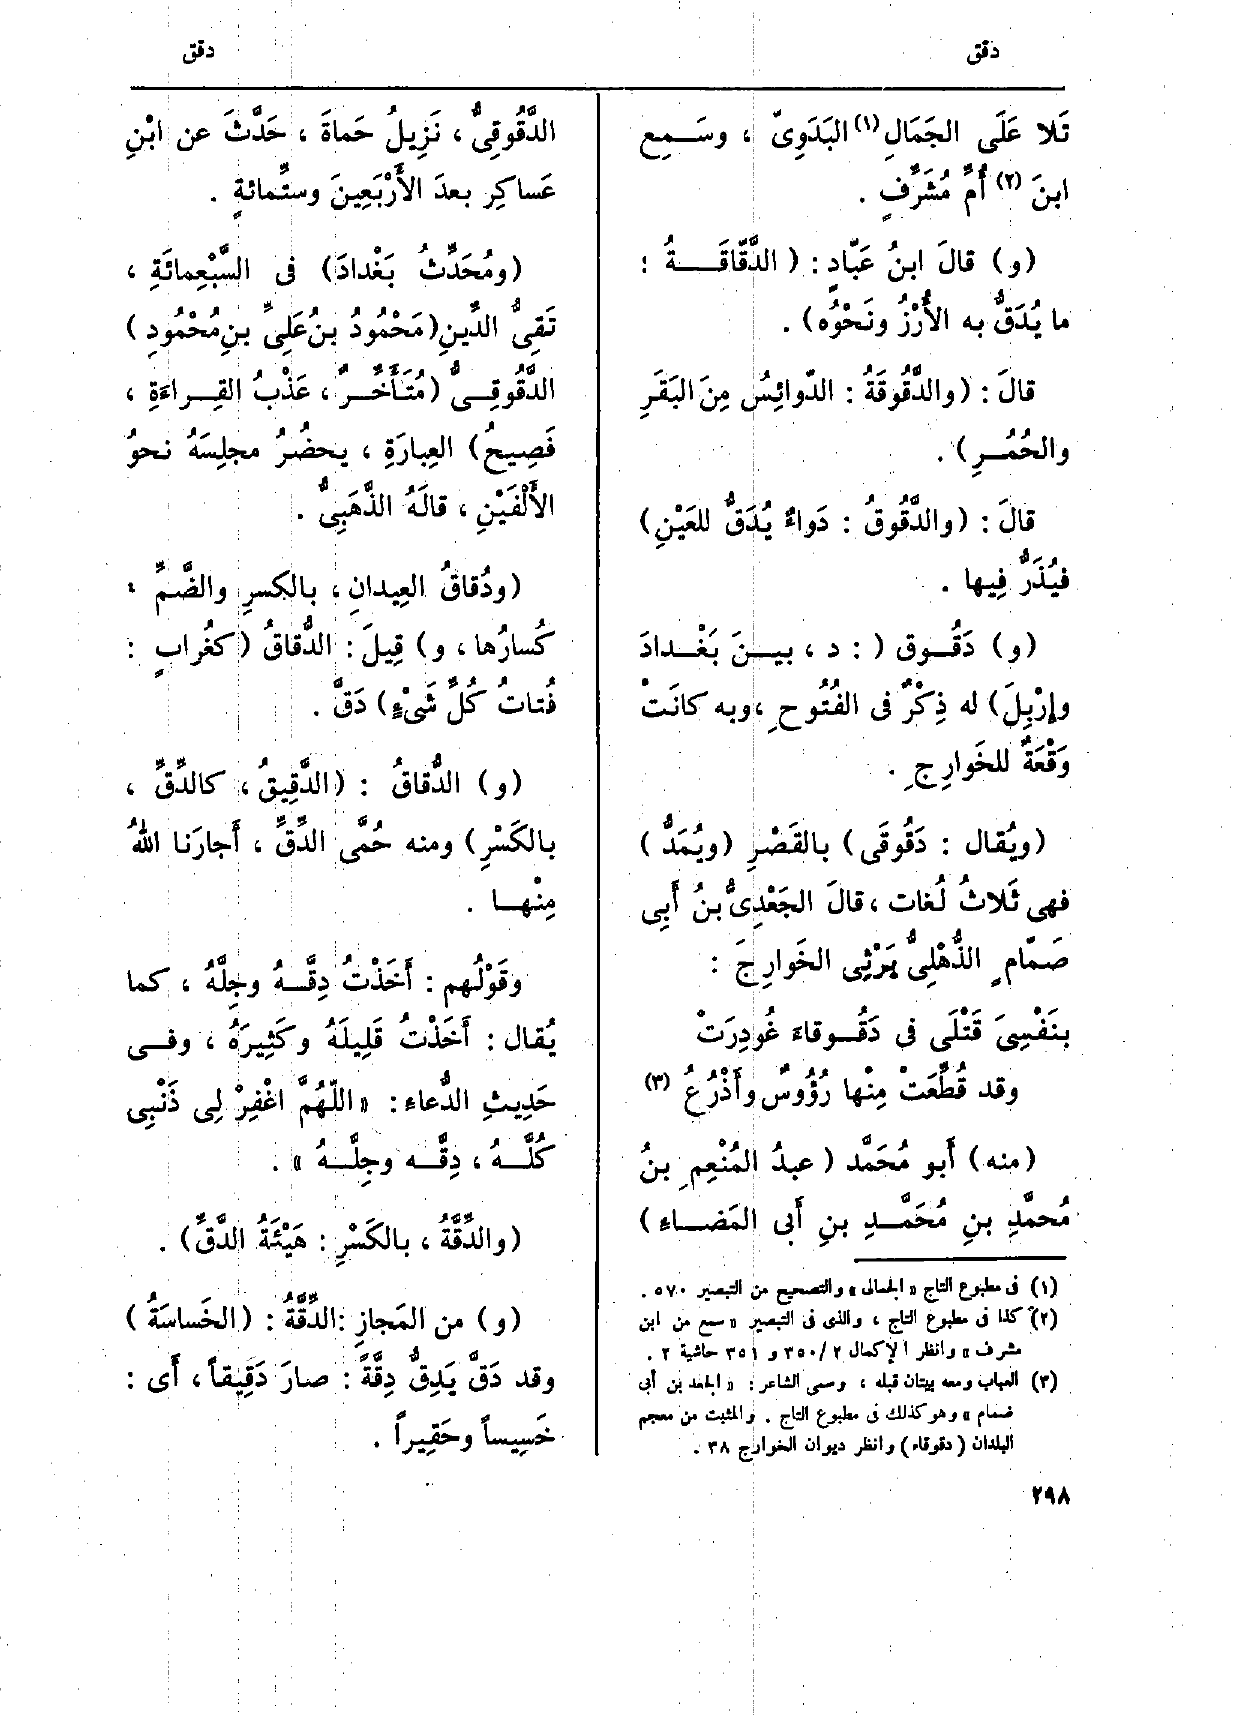 دقق
دقق
تَلا عَلَى الجَمَالِ(١) البَدَوِىّ ، وسَــمِع
ابنَ (٢) أُمِّ مُشَرَّفٍ .
(و) قالَ ابنُ عَبّادٍ : ( الدَّقّاقَــةُ :
ما يُدَقُّ به الأُرْزُ ونَحْوُه) .
قالَ : (والدَّقُوقَةُ : الدَّوائِسُ مِنَ البَقَرِ
والحُمُــرِ) .
قالَ : (والدَّقُوقُ : دَواءٌ يُدَقُّ للعَيْنِ)
فيُذَرُّ فِيها .
(و) دَقُــوق ( : د ، بيــنَ بَغْــدادَ
وإِرْبِلَ) له ذِكْرٌ فى الفُتُوحِ ،وبه كانَتْ
وَقْعَةٌ للخَوارِجِ .
(ويُقال : دَقُوقَى) بالقَصْرِ (ويُمَدُّ )
فهى ثَلاثُ لُغات ، قالَ الجَعْدِىُّ بنُ أَبِى
صَمّامٍ الذُّهْلِىُّ يَرْثِى الخَوارِجَ :
بنَفْسِىَ قَتْلَى فى دَقُــوقاءَ غُودِرَتْ
وقد قُطِّعَتْ مِنْها رُؤُوسٌ وأَذْرُعُ (٣)
(منه) أَبو مُحَمَّد ( عبدُ المُنْعِمِ بنُ
مُحمَّدِ بنِ مُحَمَّــدِ بنِ أَبى المَضــاء )
(١) فى مطبوع التاج « الجمالى » والتصحيح من التبصير ٥٧٠ .
(٢) كذا فى مطبوع التاج ، والذى فى التبصير « سمع من ابن
مشرف » وانظر الإكمال ٢ /٣٥٠ و ٣٥١ حاشية ٢ .
(٣) العباب ومعه بيتان قبله ، وسمى الشاعر : « الجعد بن أبى
ضمام » وهو كذلك فى مطبوع التاج . والمثبت من معجم
البلدان (دقوقاء) وانظر ديوان الخوارج ٣٨ .
الدَّقُوقِىُّ ، نَزِيلُ حَماةَ ، حَدَّثَ عن ابْنِ
عَساكِر بعدَ الأَرْبَعِينَ وستِّمائةٍ .
(ومُحَدِّثُ بَغْدادَ) فى السَّبْعِمائَةِ ،
تَقِىُّ الدِّينِ(مَحْمُودُ بنُ عَلِىِّ بنِ مُحْمُودِ )
الدَّقُوقِــىُّ (مُتَأَخِّــرٌ ، عَذْبُ القِــراءَةِ ،
فَصِيحُ) العِبارَةِ ، يحضُرُ مجلِسَهُ نحوُ
الأَلْفَيْنِ ، قالَهُ الذَّهَبِىُّ .
(ودُقاقُ العِيدانِ ، بالكسرِ والضَّــمِّ :
كُسارُها ، و) قِيلَ : الدُّقاقُ (كغُرابٍ :
فُتاتُ كُلِّ شَىْءٍ) دَقَّ .
(و) الدُّقاقُ : (الدَّقِيقُ ، كالدِّقِّ ،
بالكَسْرِ) ومنه حُمَّى الدِّقِّ ، أَجارَنا اللهُ
مِنْهــا .
وقَوْلُهم : أَخَذْتُ دِقَّــهُ وجِلَّهُ ، كما
يُقال : أَخَذْتُ قَلِيلَهُ وكَثِيرَهُ ، وفــى
حَدِيثِ الدُّعاء : « اللَّهُمَّ اغْفِرْ لِى ذَنْبِى
كُلَّــهُ ، دِقَّــه وجِلَّــهُ » .
(والدِّقَّةُ ، بالكَسْرِ : هَيْئَةُ الدَّقِّ) .
(و) من المَجازِ :الدِّقَّةُ : (الخَساسَةُ )
وقد دَقَّ يَدِقُّ دِقَّةً : صارَ دَقِيقاً ، أَى :
خَسِيساً وحَقِيراً .
٢٩٨